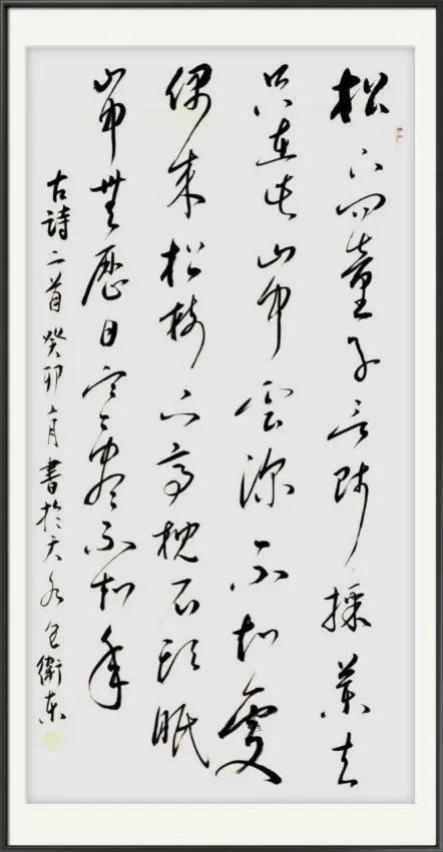 松下问童子言师採藥去
只在此山中云深不知處
偶来松樹下高枕石頭眠
山中無歷日寒盡不知年
古詩二首癸卯月書於天水衛東